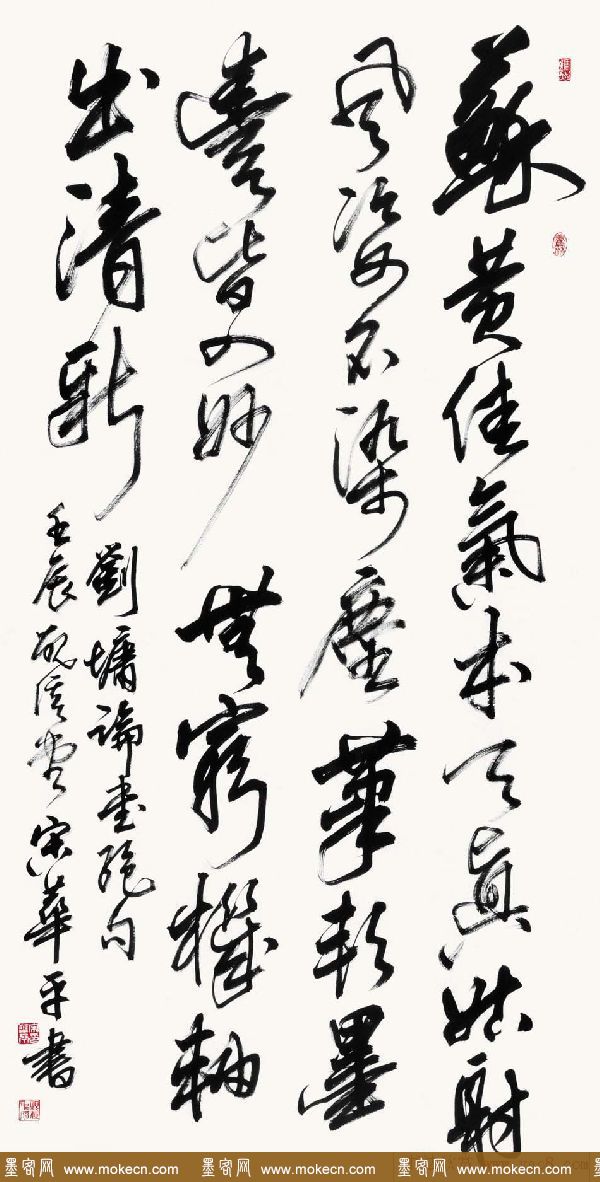 蘇黄佳氣本天真姑射
風姿不染塵筆軟墨
豐皆入妙無窮機軸
出清新
劉墉論書絶句
壬辰宋華平書
墨客网 www.mokecn.com 墨客网 www.mokecn.com 墨客网 www.mokecn.com